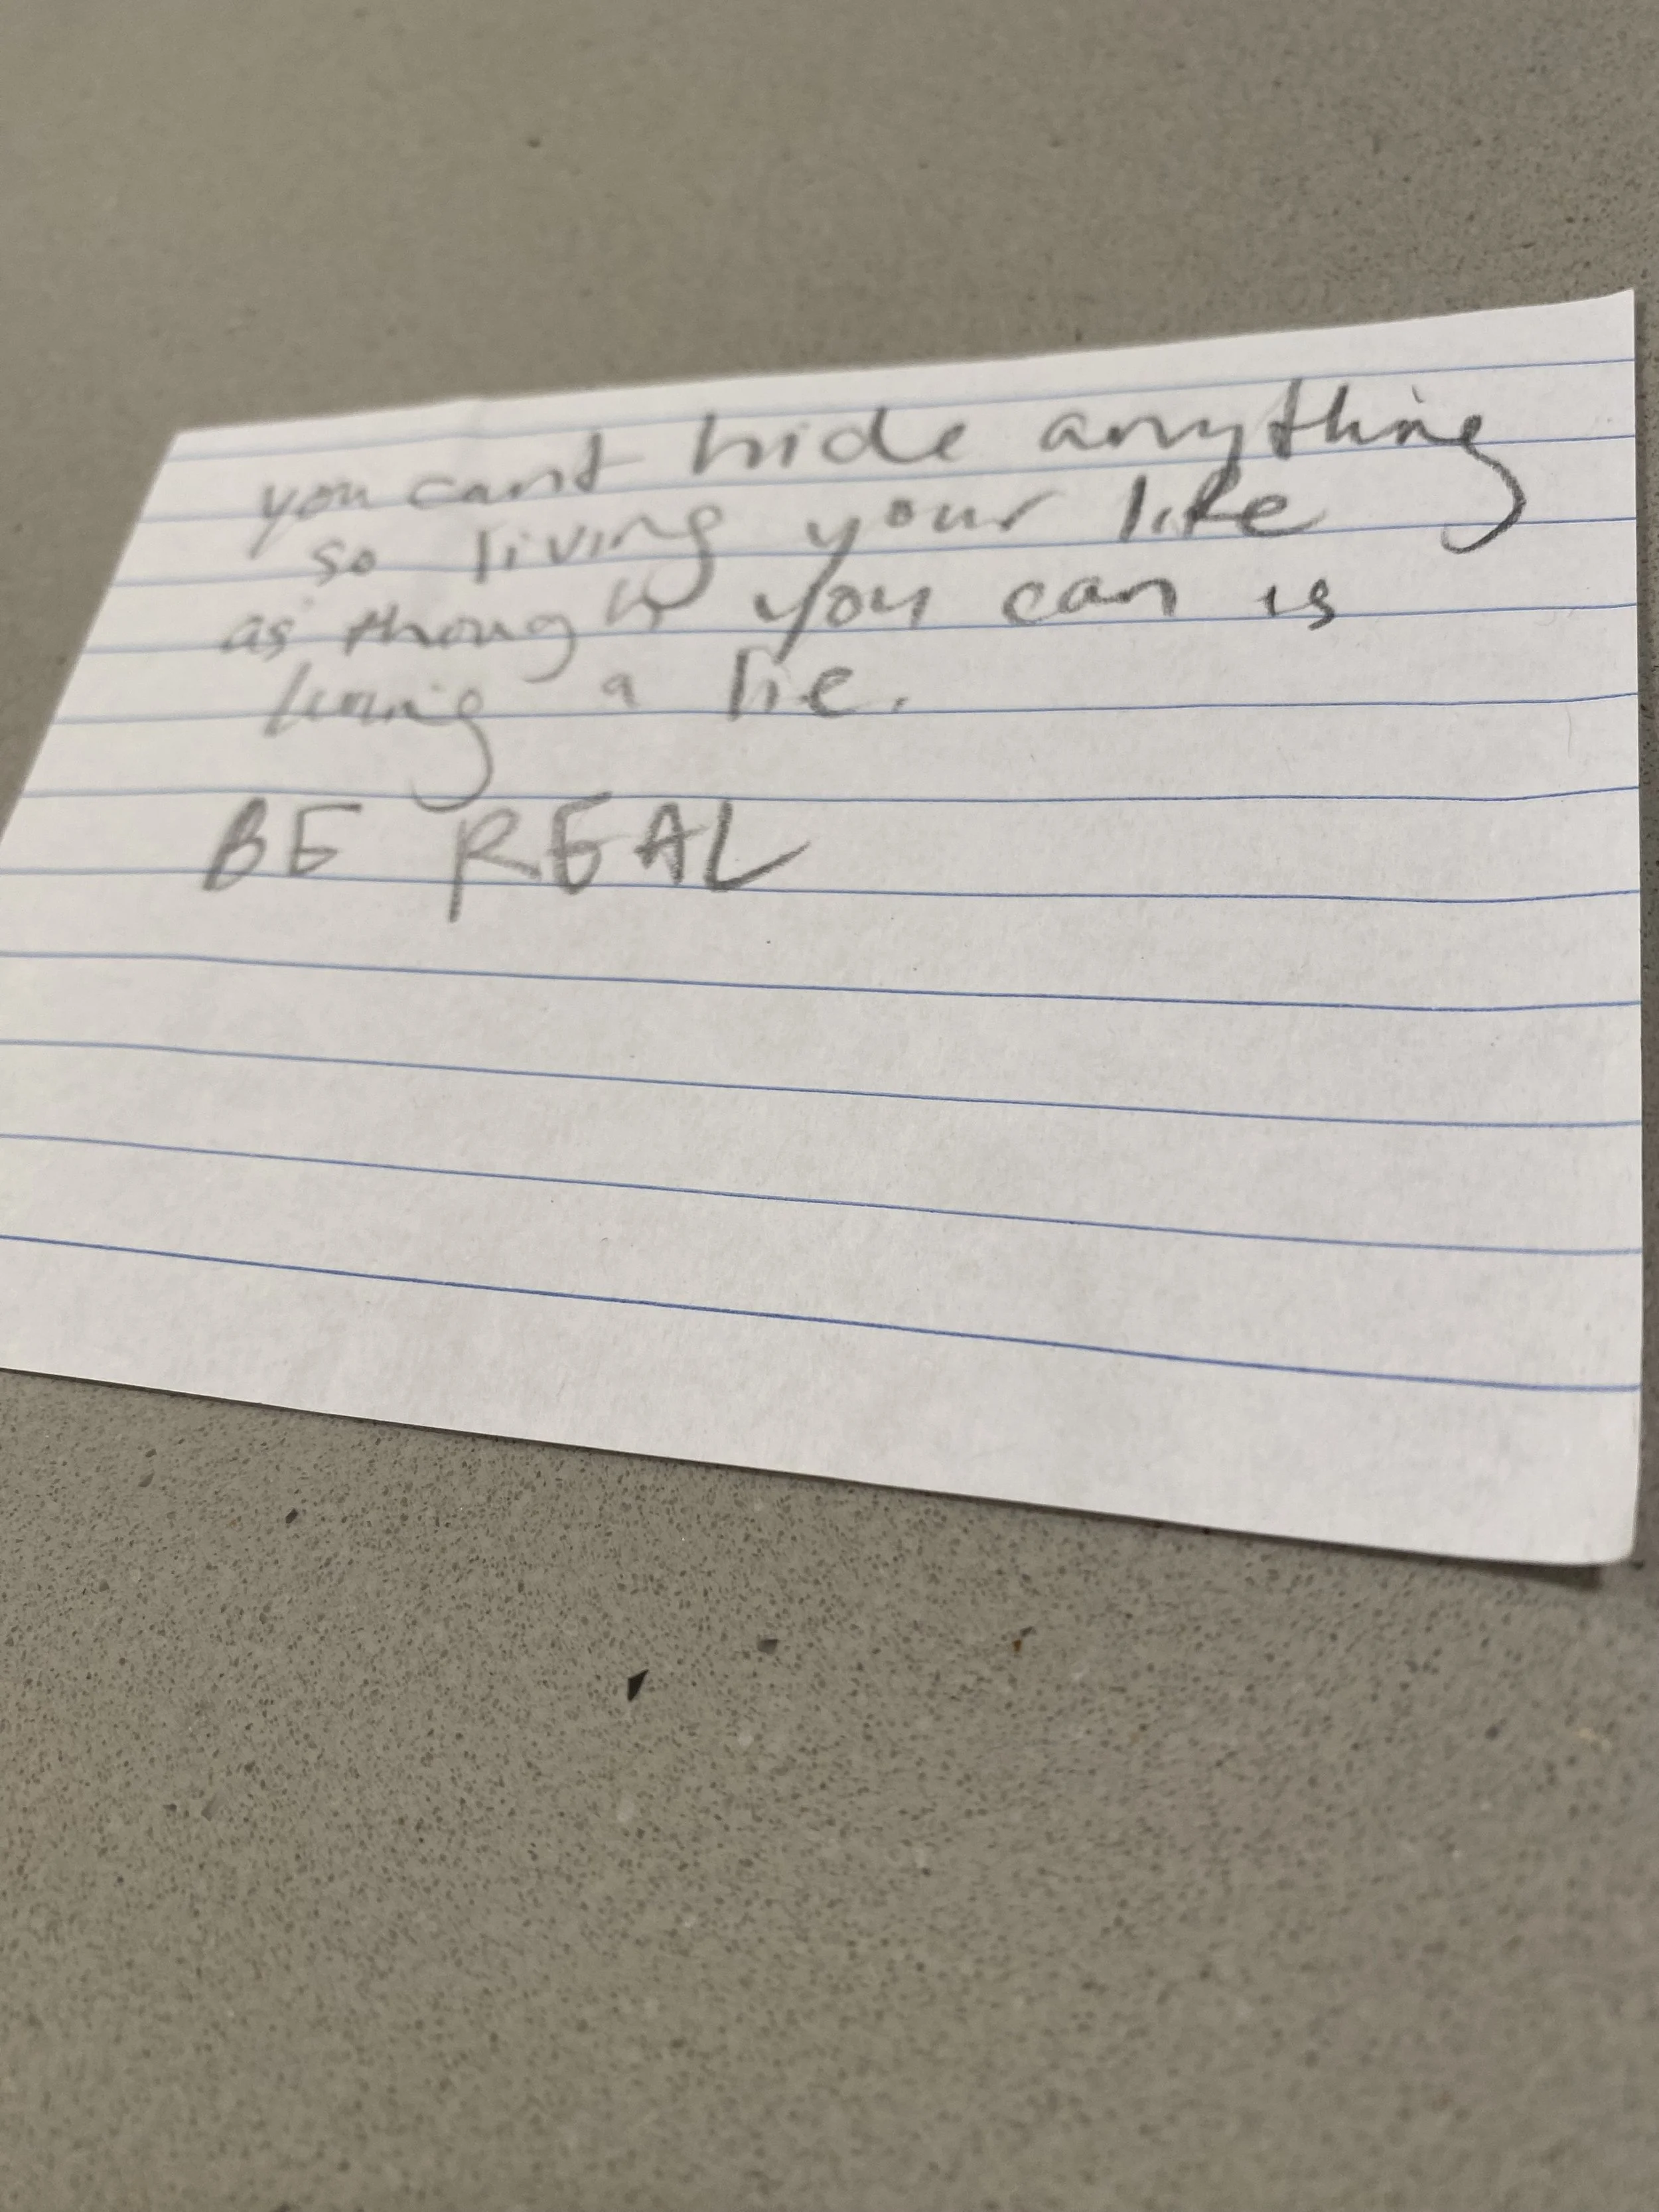 you cant hide anything
so living your life
as though you can is
living a lie.
BE REAL